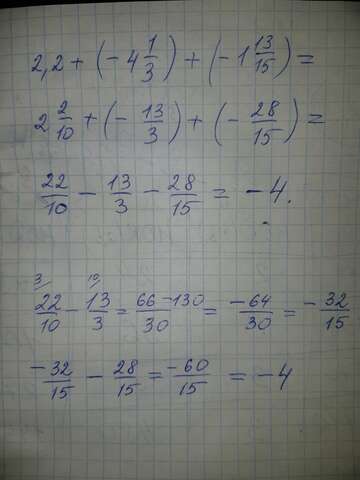 2,2 + (- 4 1/3) + (- 1 13/15) =
2 2/10 + (- 13/3) + (- 28/15) =
22/10 - 13/3 - 28/15 = -4.
3 10
22/10 - 13/3 = 66-130/30 = -64/30 = -32/15
-32/15 - 28/15 = -60/15 = -4